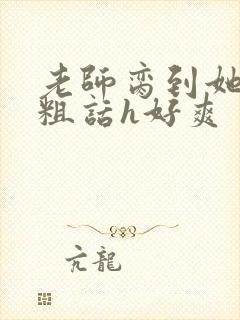 老師脔到她
粗話h好爽
亢龍